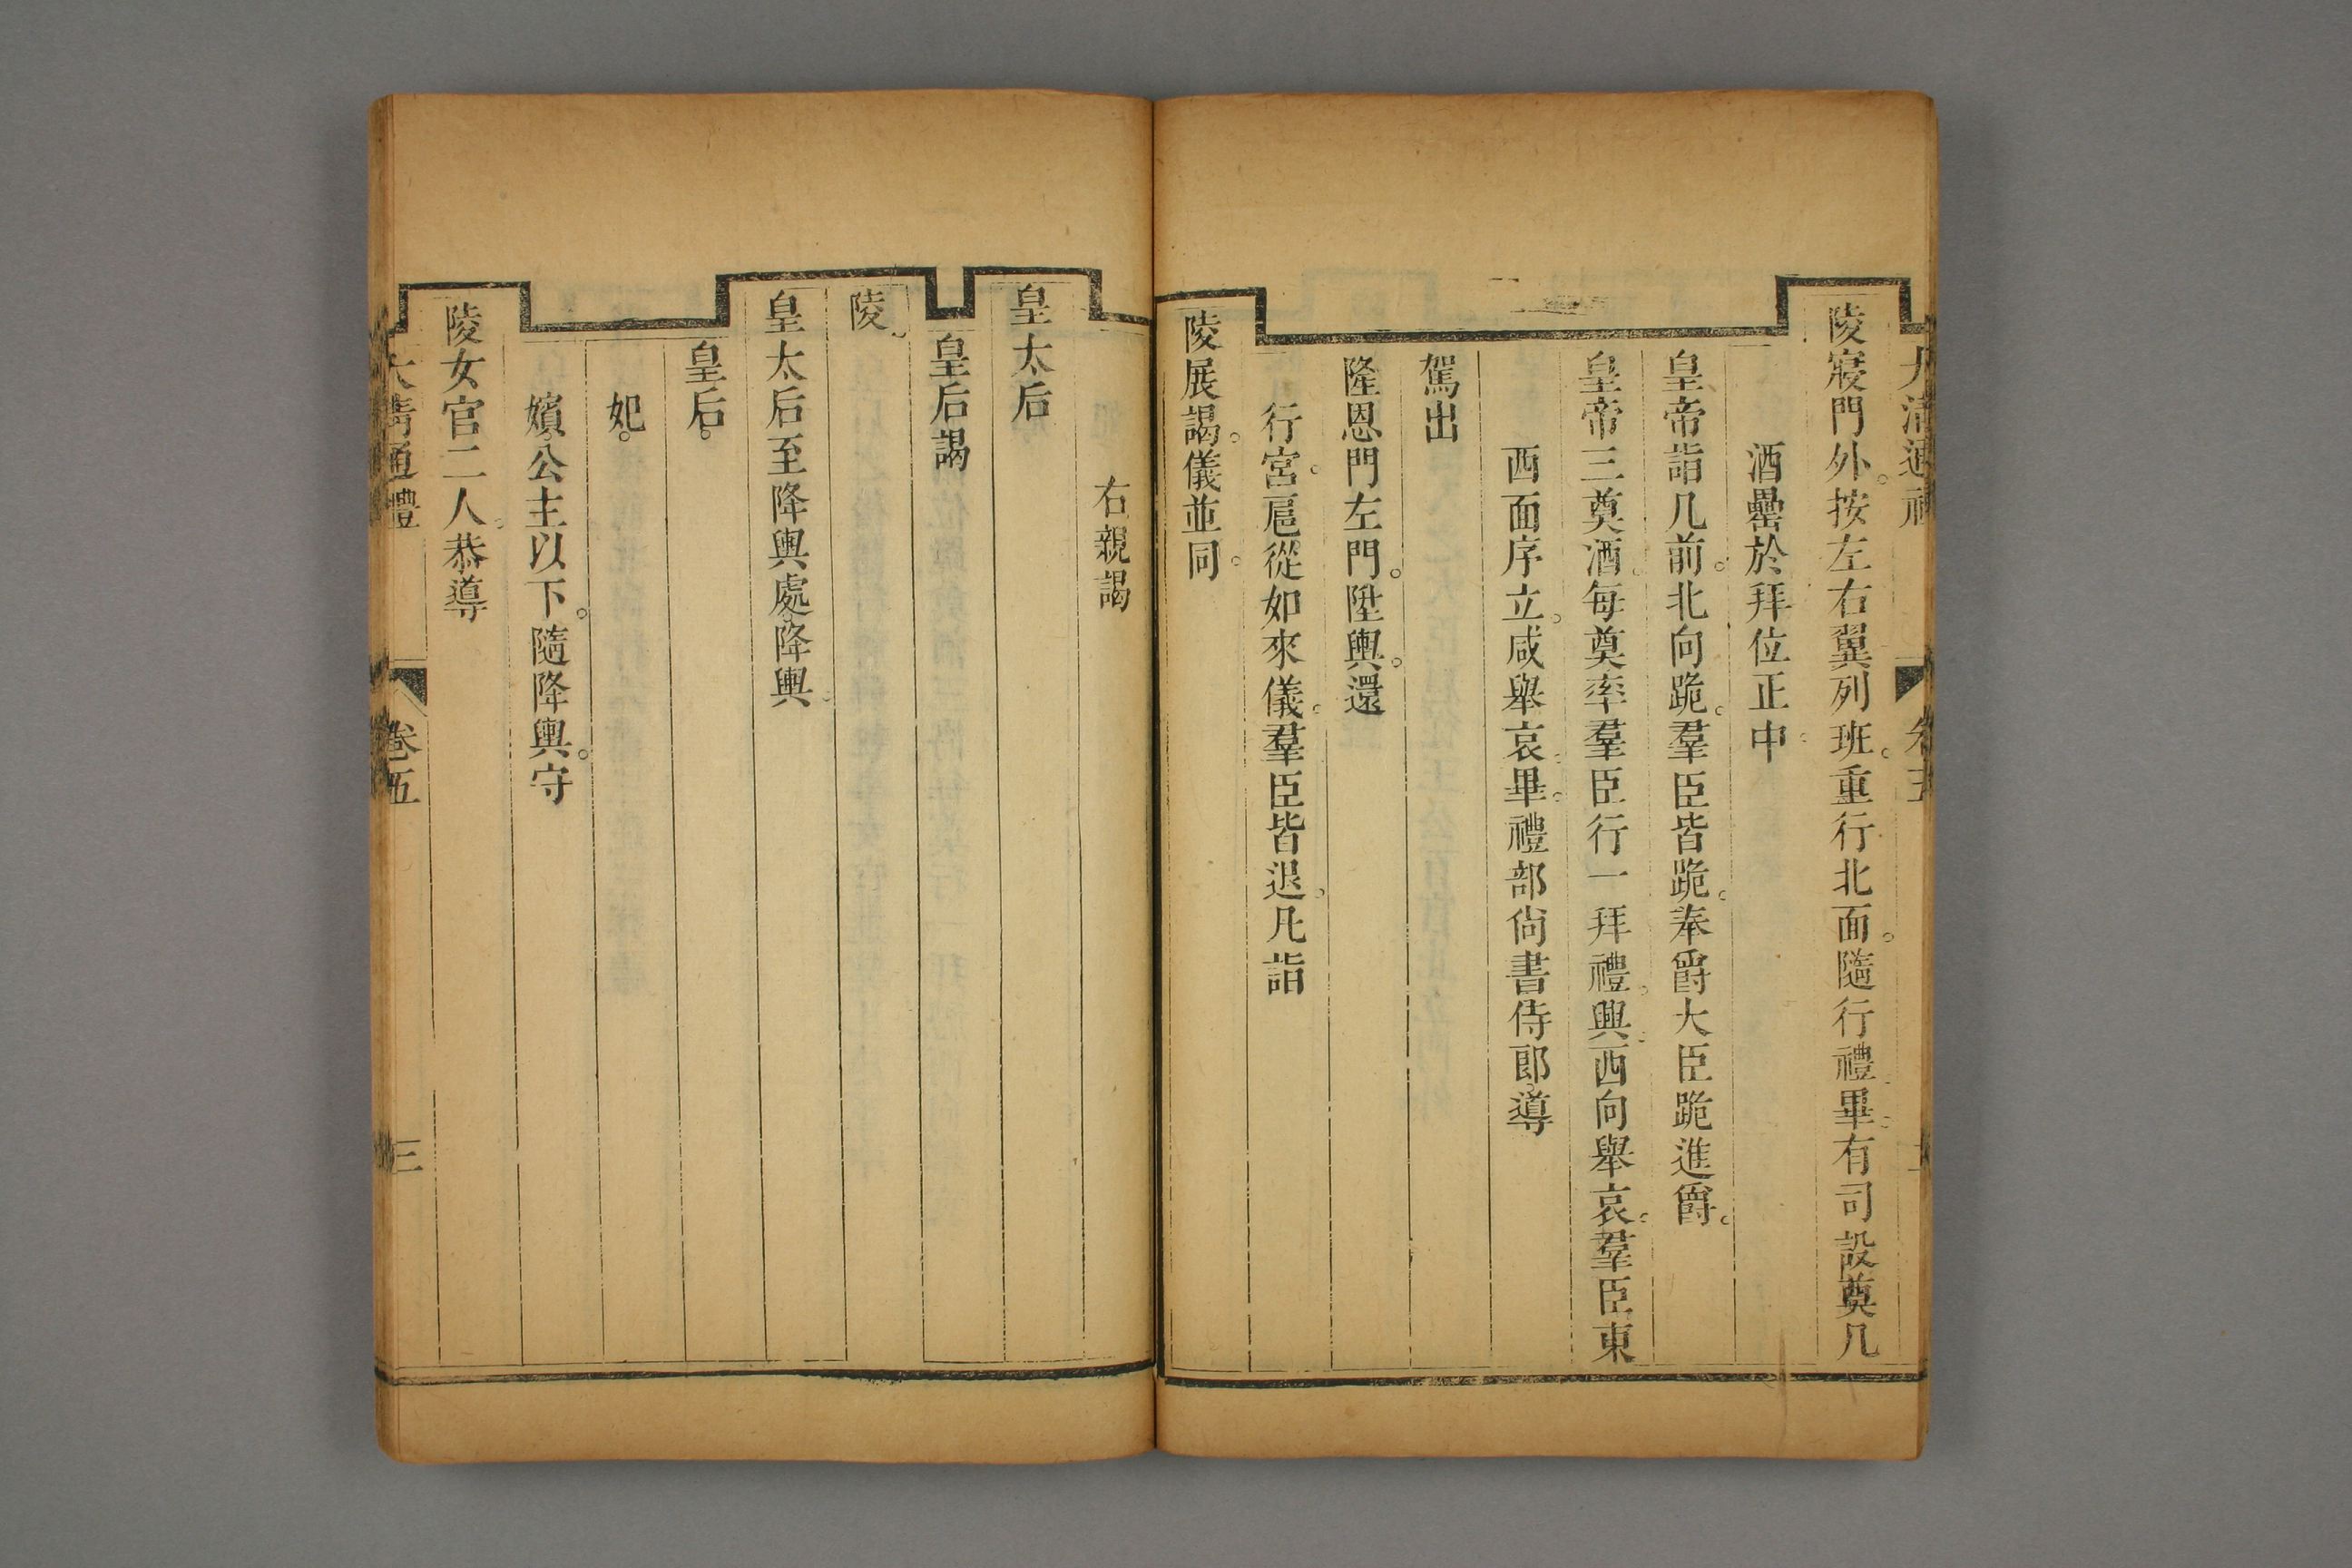 陵寢門外。按左右翼列班。重行北面。隨行禮畢。有司設奠几
酒罍於拜位正中。
皇帝詣几前。北向跪。羣臣皆跪。奉爵大臣跪進爵。
皇帝三奠酒。每奠率羣臣行一拜禮。興。西向舉哀。羣臣東
西面序立。咸舉哀。畢。禮部尙書侍郎導
駕出
隆恩門左門。陞輿。還
行宮。扈從如來儀。羣臣皆退。凡詣
陵展謁。儀並同。
右親謁
皇太后
皇后謁
陵。
皇太后至降輿處。降輿。
皇后。
妃。
嬪。公主以下。隨降輿。守
陵女官二人。恭導
大淸通禮 卷五 三